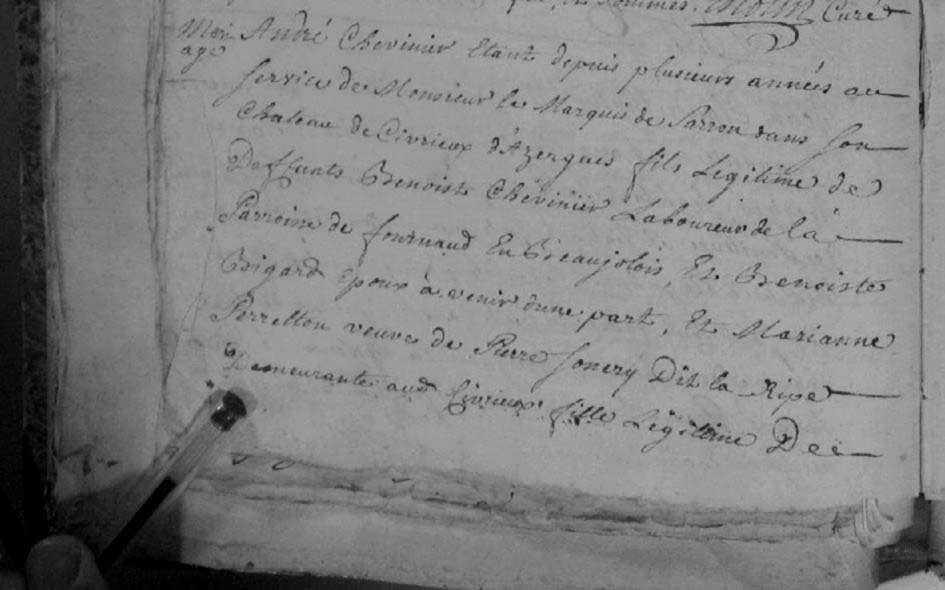 et sommes. Curé
Mari André Chevinier Etant depuis plusieurs années au
age Service de Monsieur le Marquis de Sarron dans son
Chateau de Civrieux d'Azergues fils Legitime de
Deffunts Benoist Chévinier Laboureur de la
Parroisse de fournaud En Beaujolois, Et Benoiste
Bigard Epoux à venir d'une part, Et Marianne
Perretton veuve de Pierre Sonery Dit la Ripe
Demeurante aud Civrieux fille Légitime De